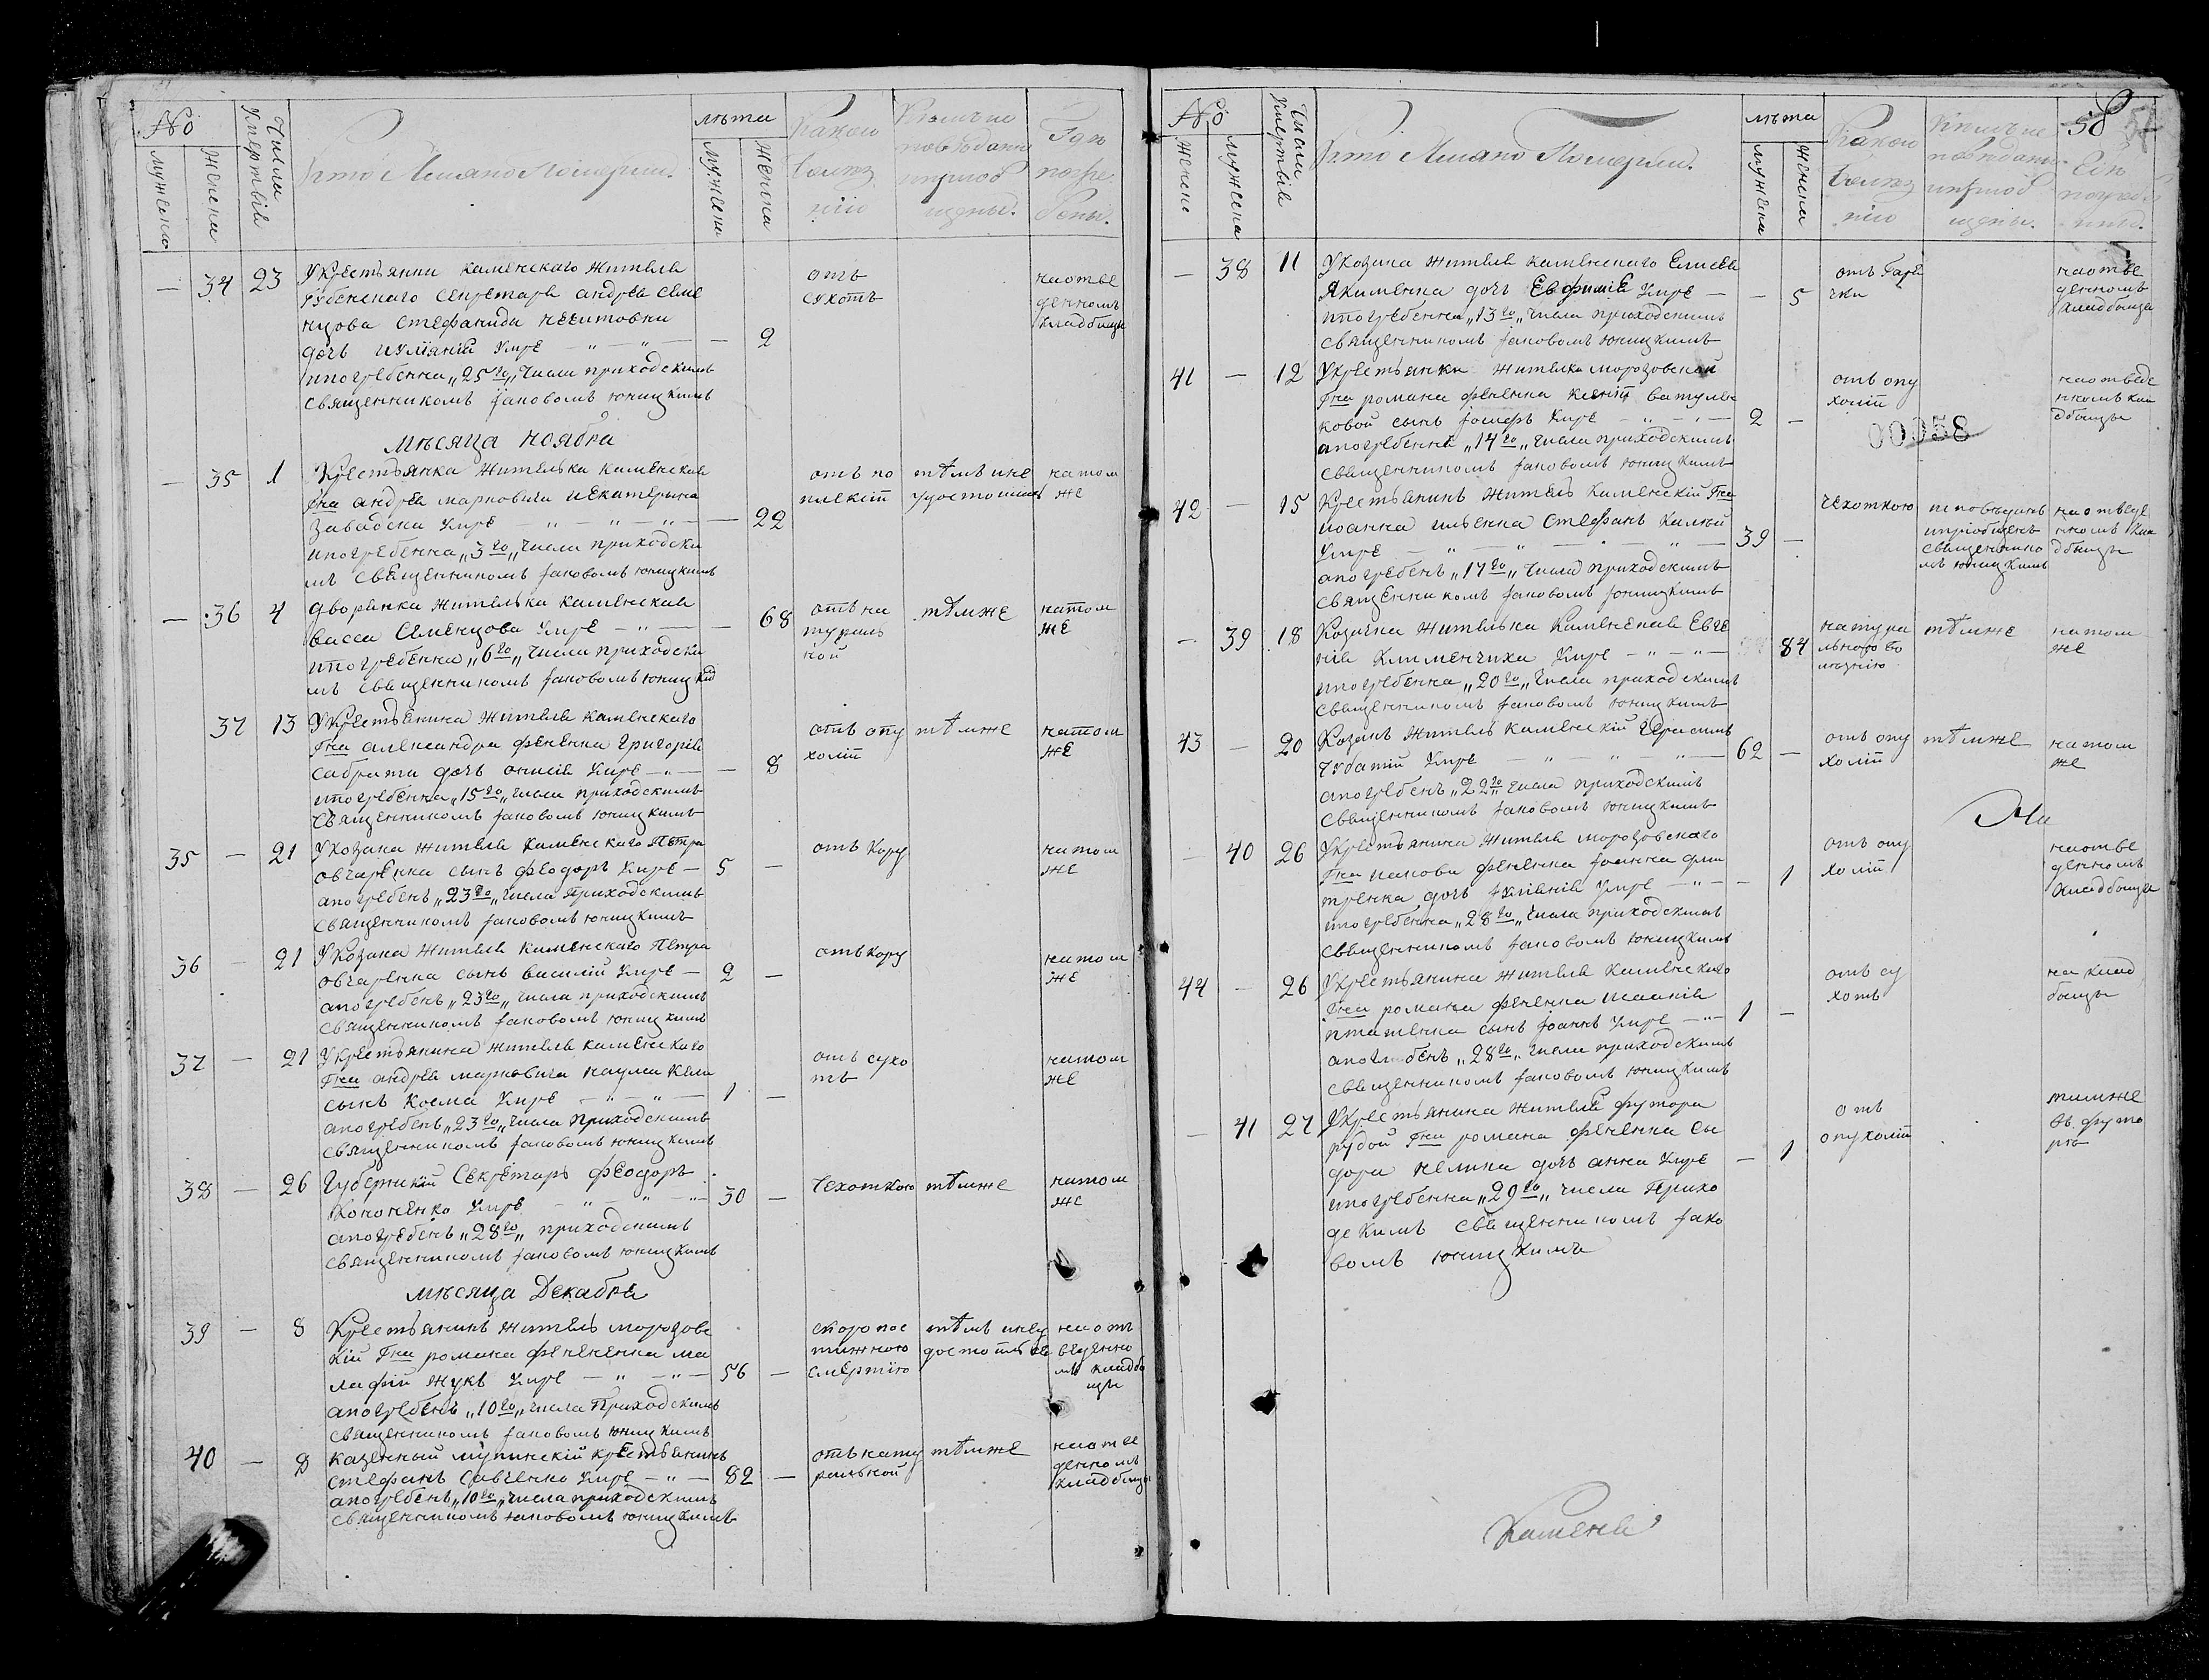 №
мужеска
женска
Числа
Умертвія
Кто Имяно Померли.
лѣта
мужска
женска
Какою
болѣз
нію
Кѣмъ ис
повѣданы
и пріоб
щены.
Где
погре
бены.
— 34 23 Укрестьянки каменскаго жителя
Губенскаго секретаря андрея семе
нцова стефаниды
дочь Умре — „ — „ — — 2
ипогребенна „25го„ числа приходскимъ
священникомъ Іаковомъ юницкимъ
отъ
сухотъ
на отве
денномъ
кладбищи
мѣсяца ноября
— 35 1 Крестьянка жителька каменская
Гна андрея марковича екатерина
завадска Умре — „ — „ — „ — — 22
ипогребенна „3го„ числа приходски
мъ священникомъ Іаковомъ юницкимъ
отъ по
плексіи
тѣмъ и не
удостоина
на том
же
— 36 4 дворянка жителька каменская
васса семенцова Умре — „ — — 68
ипогребенна „6го„ числа приходски
мъ священникомъ Іаковомъ юницки
отъ на
тураль
ной
тѣмже
натом
же
37 13 Укрестьянина жителя каменскаго
Гна александра фененка григорія
сабрати дочь онисія Умре — „ — — 8
ипогребенна „15го„ числа приходскимъ
священникомъ Іаковомъ юницкимъ
отъ опу
холіи
тѣмже
натом
же
35 — 21 Укозака жителя каменскаго Петра
овчаренка сынъ феодоръ Умре — 5 —
апогребенъ „23го„ числа Приходскимъ
священникомъ Іаковомъ юницкимъ
отъ кору
натом
же
36 — 21 Укозака жителя каменскаго Петра
овчаренка сынъ василій Умре — 2 —
апогребенъ „23го„ числа приходскимъ
священникомъ Іаковомъ юницкимъ
отъ кору
натом
же
37 — 21 Укрестьянина жителя каменскаго
Гна андрея марковича наума
сынъ Косма Умре — „ — „ — 1 —
апогребенъ „23го„ числа приходскимъ
священникомъ Іаковомъ юницкимъ
отъ сухо
тъ
натом
же
38 — 26 Губернскій Секретарь Феодоръ
Кононенко Умре — „ — „ — 30 —
апогребенъ „28го„ приходскимъ
священникомъ Іаковомъ юницкимъ
чехоткою
тѣмже
натом
же
мѣсяца Декабря
39 — 8 Крестьянинъ житель морозовс
кій Гна романа фененка ма
лафій жукъ Умре — „ — „ — 56 —
апогребенъ „10го„ числа Приходскимъ
священникомъ Іаковомъ юницкимъ
скоропос
тижною
смертію
тѣмъ и неу
достоился
на отъ
веденно
мъ кладб
ищи
40 — 8 казенный крестьянинъ
стефанъ савченко Умре — „ — 82 —
апогребенъ „10го„ числа приходскимъ
священникомъ яковомъ юницкимъ
отъ нату
ральной
тѣмже
на отве
денномъ
кладбищи
№
женска
мужеска
Числа
Умертвія
Кто Имяно Померли.
лѣта
мужска
женска
Какою
болѣз
нію
Кѣмъ ис
повѣданы
и пріоб
щены.
58
Где
погребе
ны.
— 38 11 Укозака жителя каменскаго Елисея
Якименка дочь Евфимія Умре — — 5
ипогребенна „13го„ числа приходскимъ
священникомъ Іаковомъ юницкимъ
отъ горя
чки
на отве
денномъ
кладбищи
41 — 12 Укрестьянки жителки морозовской
Гна романа фененка ксеніи ватулен
ковой сынъ Іосифъ Умре — „ — 2 —
апогребенъ „14го„ числа приходскимъ
священникомъ Іаковомъ юницкимъ
отъ опу
холіи
на отведе
нномъ кла
дбищи
00058
42 — 15 Крестьянинъ житель каменскій Гна
иоанна ильенка стефанъ
Умре — „ — „ — „ — 39 —
апогребенъ „17го„ числа приходскимъ
священникомъ Іаковомъ Юницкимъ
чехоткою
исповѣданъ
ипріобщенъ
священнико
мъ юницкимъ
на отведе
нномъ кла
дбищи
— 39 18 Козачка жителька Каменская Евге
нія Клименчиха Умре — „ — „ — 84
ипогребенна „20го„ числа приходскимъ
священникомъ Іаковомъ юницкимъ
натура
льною бо
лѣзнію
тѣмже
натом
же
43 — 20 Козакъ житель каменскій герасимъ
Чубатій Умре — „ — „ — „ — 62 —
апогребенъ „22го„ числа приходскимъ
священникомъ Іаковомъ юницкимъ
отъ опу
холіи
тѣмже
натом
же
— 40 26 Укрестьянина жителя морозовскаго
Гна якова фененка Іоанна дми
тренка дочь Умре — „ — — 1
ипогребенна „28го„ числа приходскимъ
священникомъ Іаковомъ юницкимъ
отъ опу
холіи
на отве
денномъ
кладбищи
44 — 26 Укрестьянина жителя каменскаго
Гна романа фененка
сынъ Іоаннъ Умре — „ — 1 —
апогребенъ „28го„ числа приходскимъ
священникомъ Іаковомъ юницкимъ
отъ су
хотъ
на клад
бищи
— 41 27 Укрестьянина жителя футора
рудой Гна романа фененка си
дора дочь анна Умре — 1
ипогребенна „29го„ числа Прихо
дскимъ священникомъ Іако
вомъ юницкимъ
отъ
опухоліи
тамже
въ футо
рѣ
Каменя